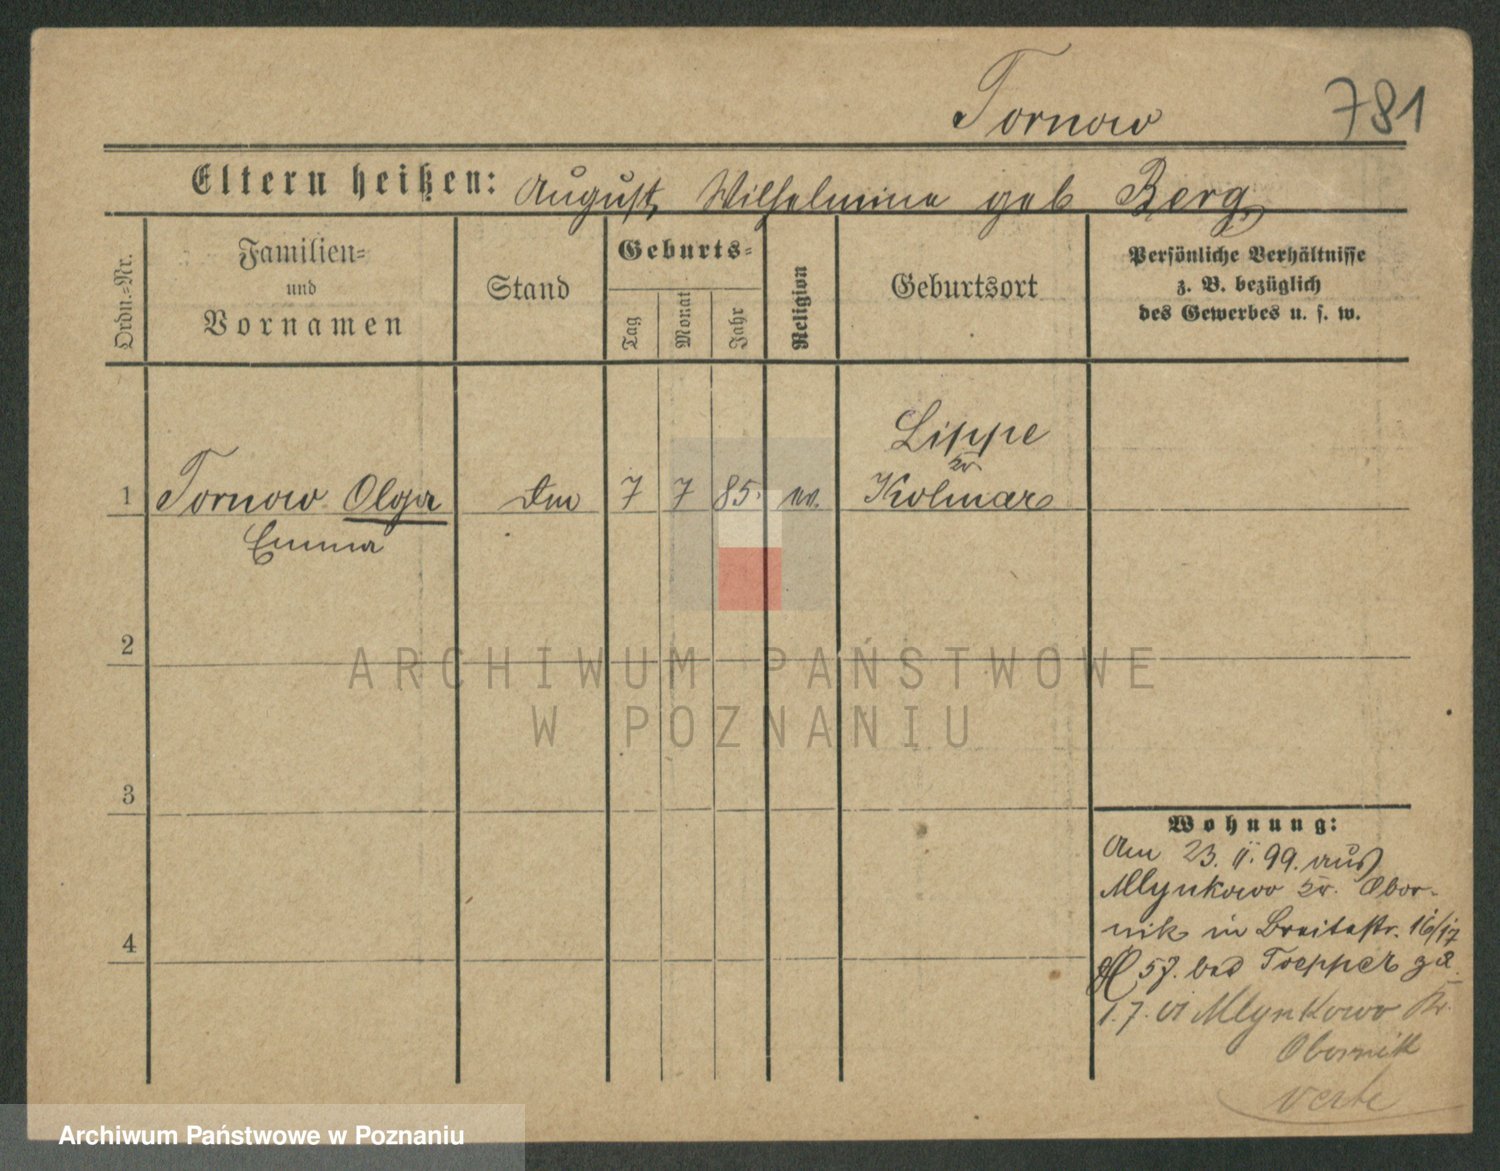 Tornow 781
Eltern heißen: August, Wilhelmine geb Berg
Ordn.-Nr.
Familien-
und
Vornamen
Stand
Geburts-
Tag
Monat
Jahr
Religion
Geburtsort
Persönliche Verhältnisse
z. B. bezüglich
des Gewerbes u. s. w.
Lippe
Kr
1 Tornow Olga 7 7 85. ev. Kolmar
Emma
2
3
4
Wohnung:
Am 23. II. 99. aus
Mlynkowo Kr. Obor-
nik in Breitestr. 16/17
H 57. bei Toepper
1. 7. Mlynkowo Kr.
Obornik
verte
ARCHIWUM PAŃSTWOWE
W POZNANIU
Archiwum Państwowe w Poznaniu